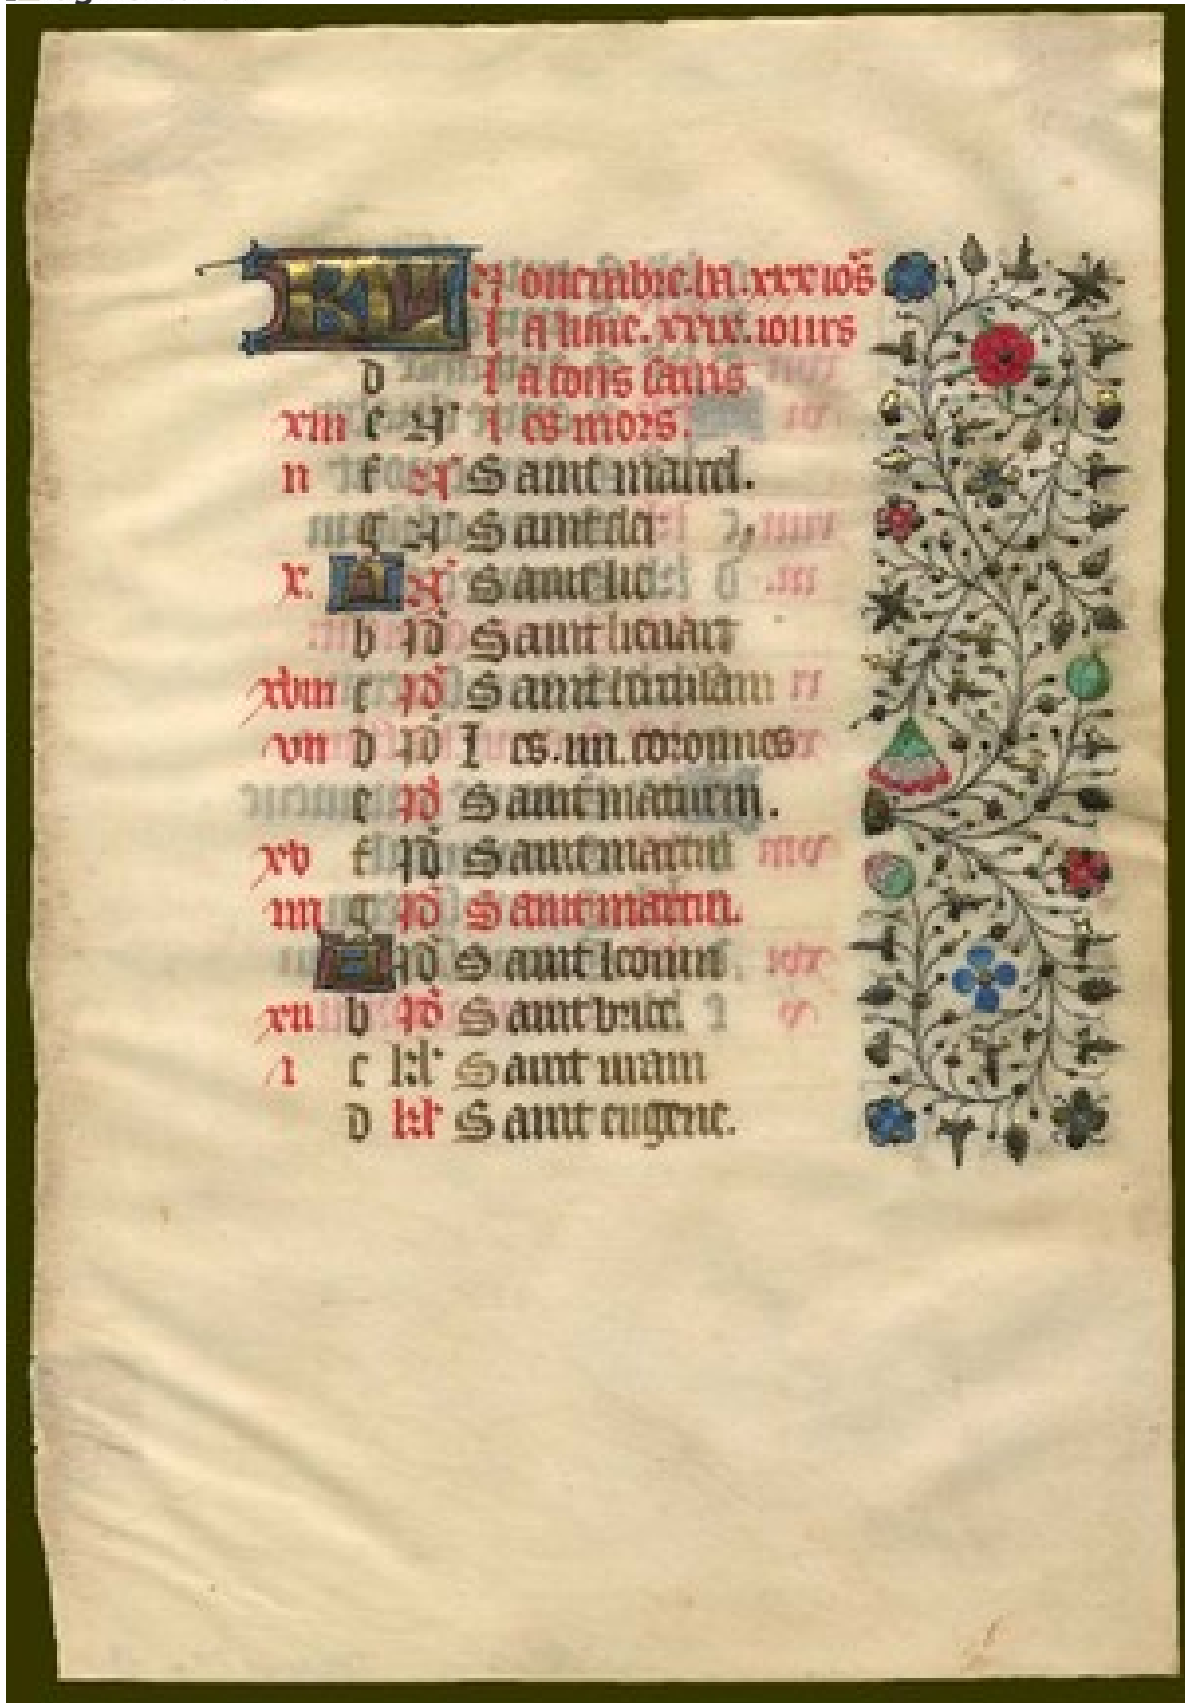 KL Nouembre. ha. xxx ios
La lune. xxix. iours
d La tous sains
xiii e N Les mors.
ii f N Saint marcel.
g N Saint
x. A N Saint
b id Saint lienart
xviii c id Saint
vii d id Les. iiii. coronnes
e id Saint maturin.
xv f id Saint martin
iiii g id Saint martin.
A id Saint
xii b id Saint brice.
i c kl Saint
d kl Saint eugene.